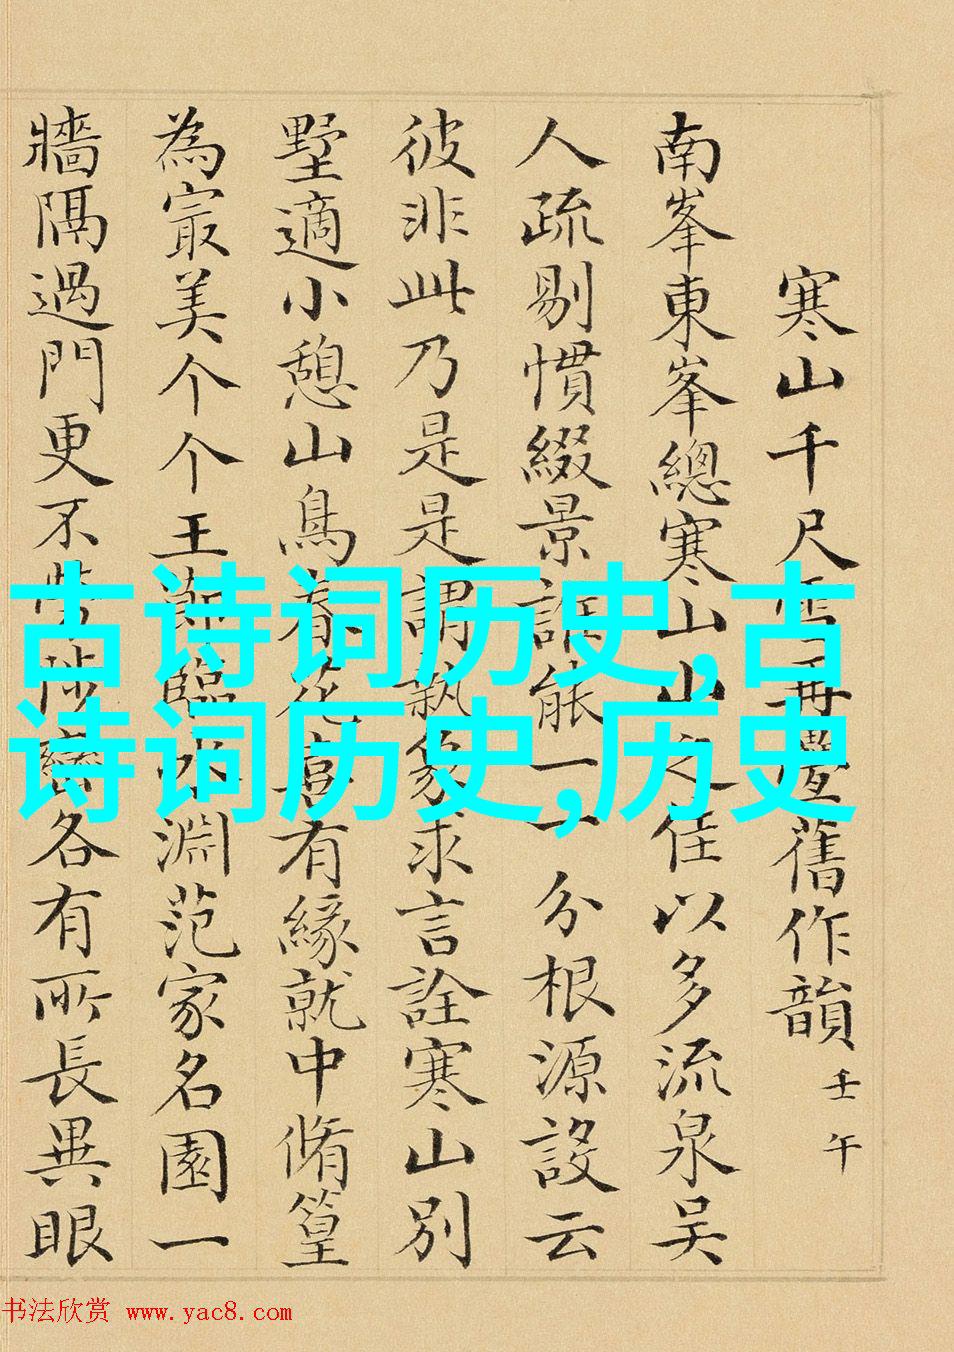 寒山千尺雪再疊舊作韻 壬午
南峯東峯總寒山山之佳以多流泉吴
人疏剔慣綴景誰能一一分根源設云
彼非此乃是是謂執象求言詮寒山別
墅適小憩山鳥春花有緣就中脩篁
為冣美个个王臨水淵范家名園一
牆隔過門更不勞陟巒各有所長異眼
古诗词历史,古
诗词历史,历史
书法欣赏 www.yac8.com